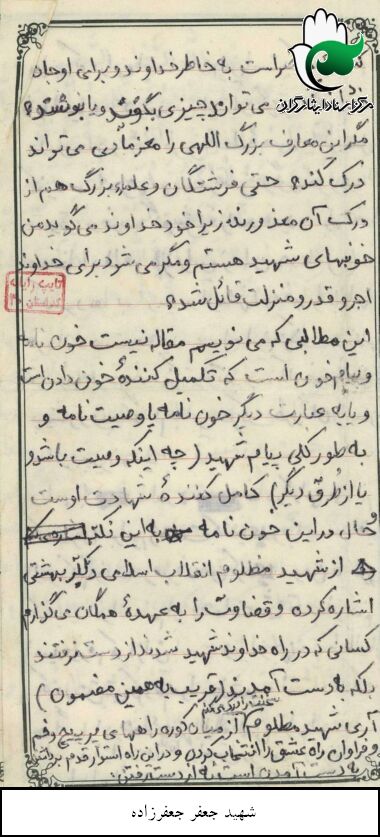 است به خاطر خداوند و برای او جان
مرکز اسناد ایثارگران
می تواند چیزی بگوید و یا بنویسد؟
مگر این معارف بزرگ اللهی را مغز مادی می تواند
درک کند؟ حتی فرشتگان و علماء بزرگ هم از
درک آن معذورند زیرا خود خداوند می گوید من
خونبهای شهید هستم و مگر می شود برای خداوند
اجر و قدر و منزلت قائل شد؟
تایپ رایانه
این مطالبی که می نویسم مقاله نیست خون نامه
و پیام خون است که تکمیل کنندهٔ خون دادن است
و یا به عبارت دیگر خون نامه یا وصیت نامه و
به طور کلی پیام شهید (چه اینکه وصیت باشد و
یا از طُرق دیگر) کامل کنندهٔ شهادت اوست
و حال در این خون نامه به این نکته
از شهید مظلوم انقلاب اسلامی دکتر بهشتی
اشاره کرده و قضاوت را به عهدهٔ همگان می گذارم
کسانی که در راه خداوند شهید شدند از دست نرفتند
بلکه به دست آمدند (قریب به همین مضمون)
آری شهید مظلوم از میان کوره راههای پر پیچ و خم
و فراوان راه عشق را انتخاب کردن و در این راه استوار قدم برداشتن
به دست آمدن است نه از دست رفتن.
شهید جعفر جعفرزاده